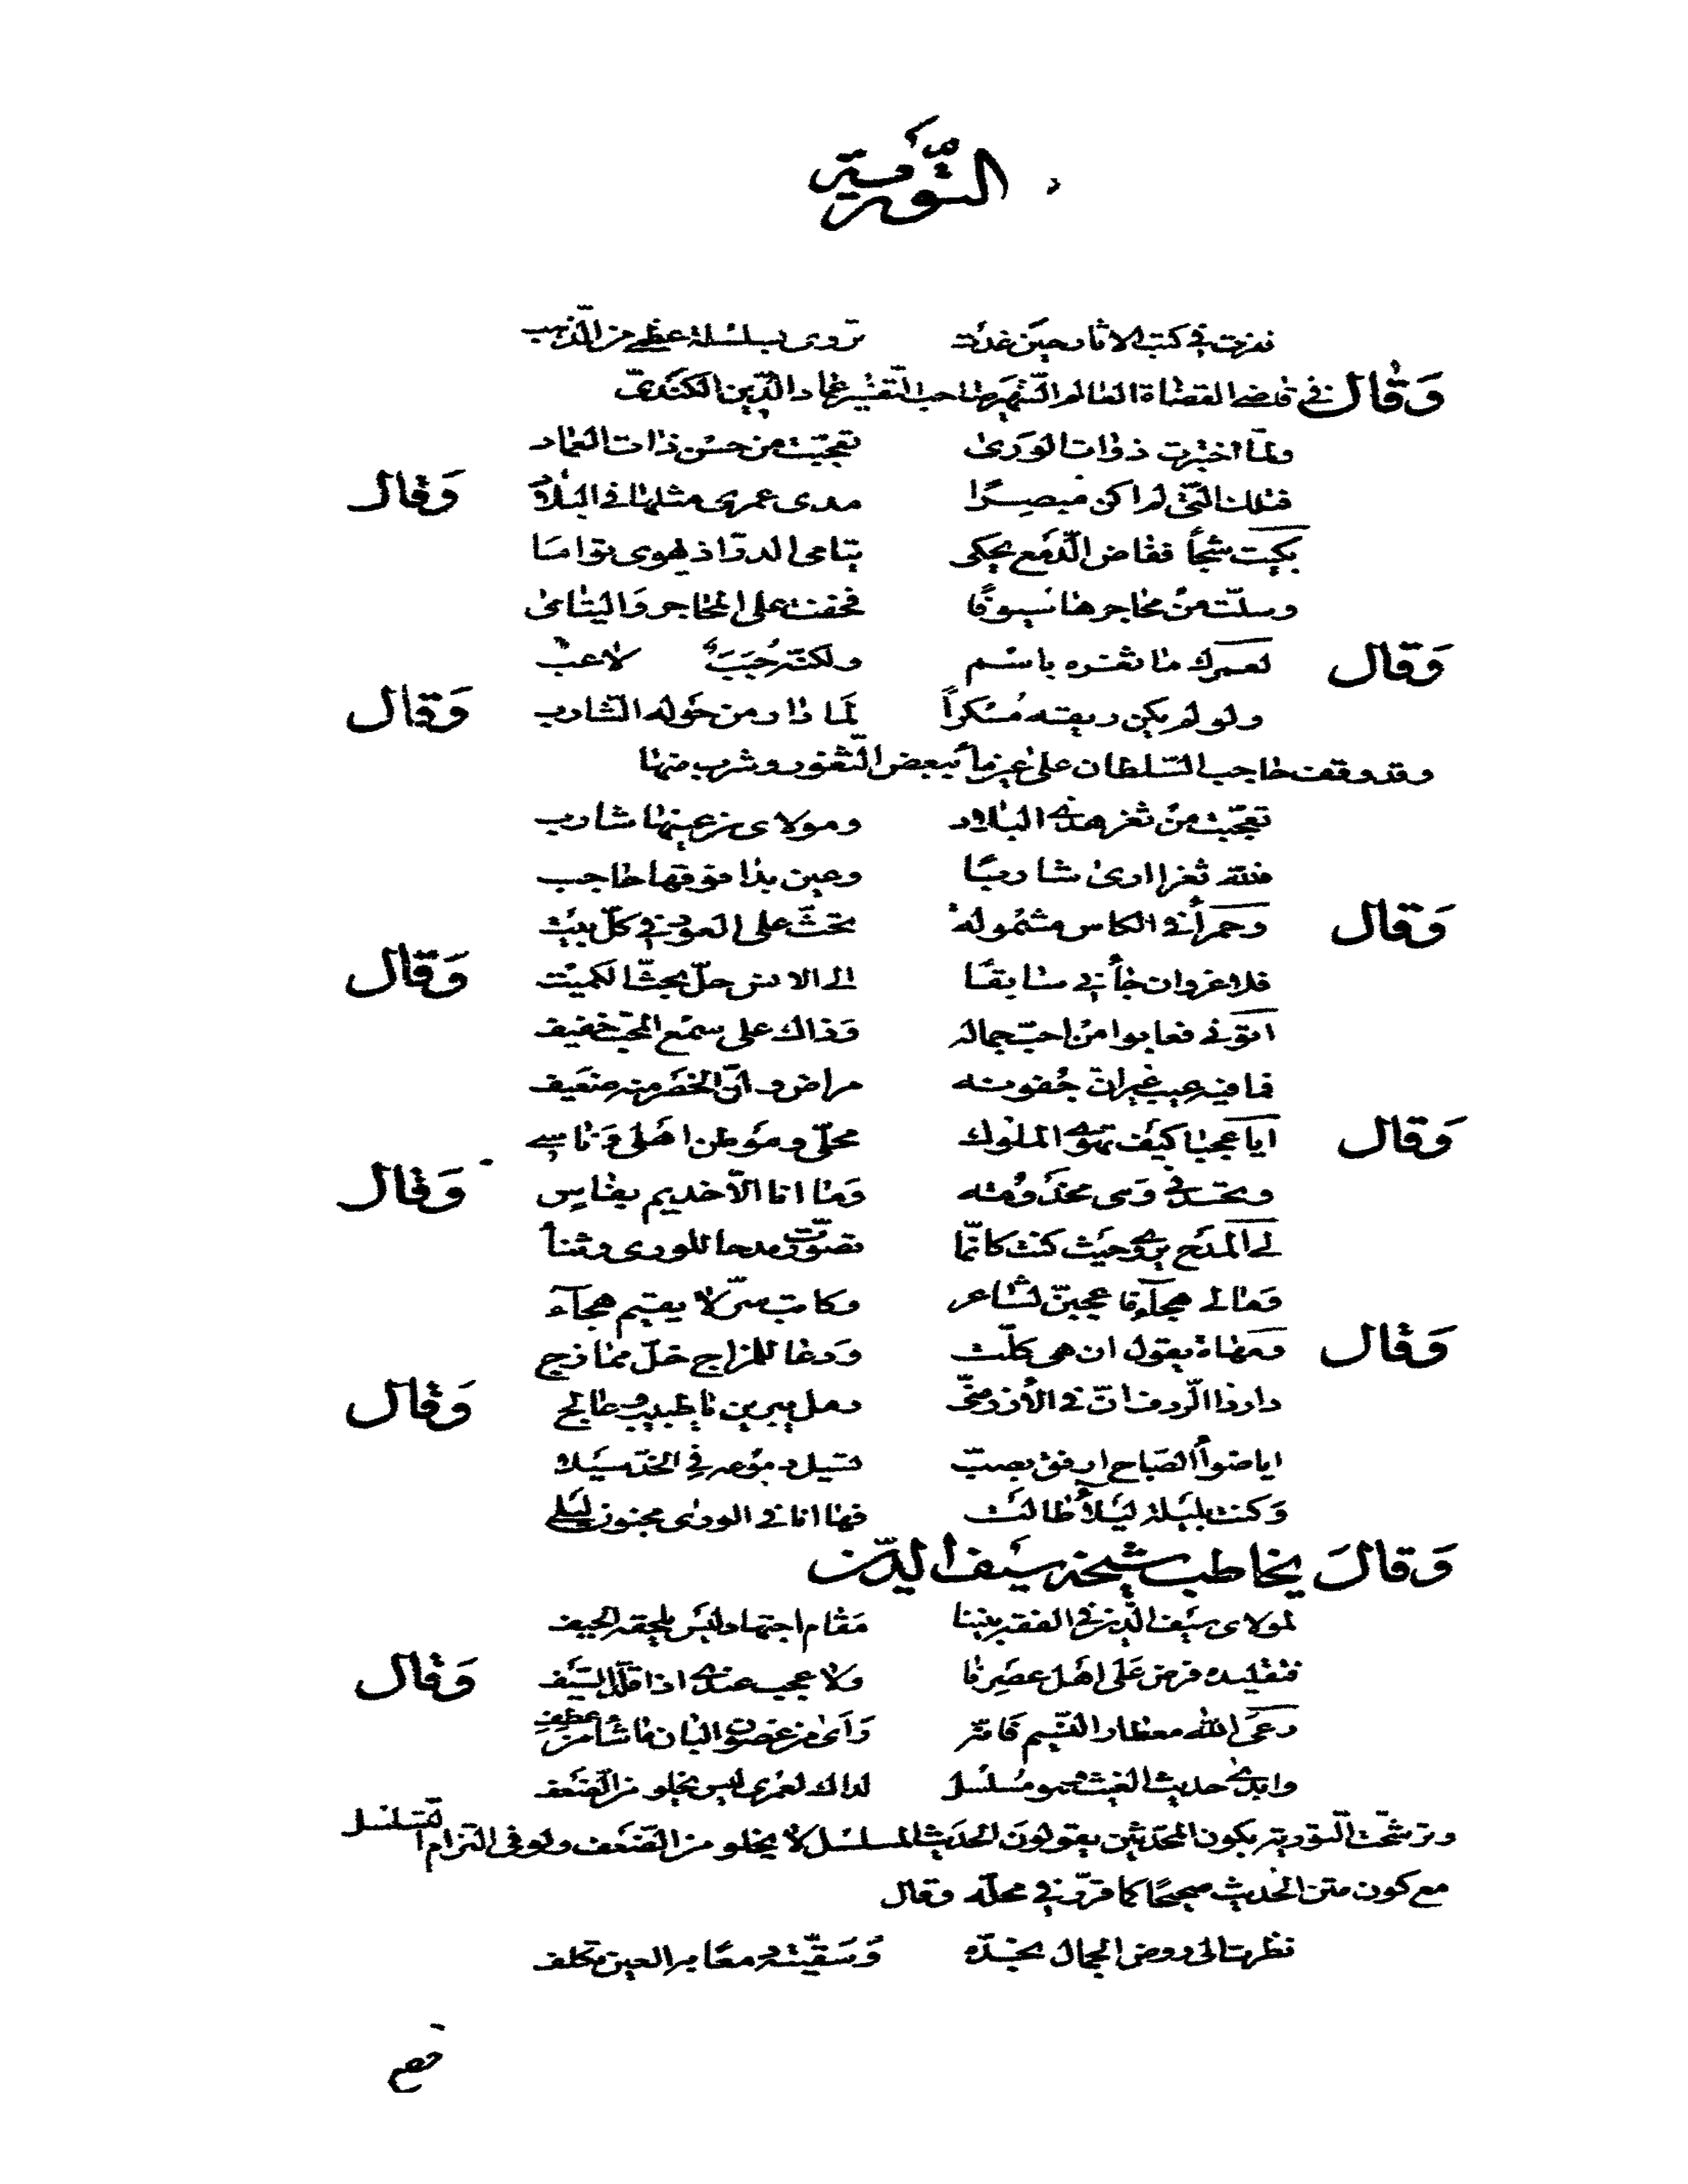 التورية
تفردت في كتب الاثار حين غدت تروى بسلسلة عظمى من الذهب
وقال في قاضى القضاة العالم الشهير صاحب التفسير عماد الدين الكندى
ولما اختبرت ذوات الورى تعجبت من حسن ذات العماد
فتلك التى لم اكن مبصرا مدى عمرى مثلها فى البلاد وقال
بكيت شجأ ففاض الدمع يحكى يتامى الدر اذ يهوى تواما
وسلت من محاجرها سيوفا فخفت على المحاجر واليتامى
وقال لعمرك ما ثغره باسم ولكنه حبب لاعب
ولو لم يكن ريقه مسكراً لما دار من حوله الشارب وقال
وقد وقف حاجب السلطان على عين مأ ببعض الثغور وشرب منها
تعجبت من ثغر هذى البلاد ومولاى من عينها شارب
فلله ثغرا ارى شاربا وعين بدا فوقها حاجب
وقال وحمرأ فى الكاس مشمولة تحث على العود فى كل بيت
فلا غروان جأنى سابقا الى الانس خل يحث الكميت وقال
اتونى فعابوا من احب جماله وذاك على سمع المحب خفيف
فما فيه عيب غير ان جفونه مراض وان الخصر منه ضعيف
وقال ايا عجبا كيف تهوى الملوك محلى وموطن اهلى وناسى
وتحسدنى وهى مخدومة وما انا الا خديم بفاس وقال
لى المدح يروى حيث كنت كانما تصورت مدحا للورى وثنأ
ومالى هجآء فاعجبن لشاعر وكاتب سر لا يقيم هجآء
وقال ومهاة يقول ان هى كلت ودعا للمزاج خل ممازج
دار ذا الردف ان فى الأزر منه رمل يبرين يا طبيب وعالج وقال
ايا ضوأ الصباح ارفق بصب تسيل دموعه فى الخد سيلا
وكنت بليلة ليلأ طالت فها انا فى الورى مجنون ليلى
وقال يخاطب شيخه سيف الدين
لمولاى سيف الدين فى الفقه بيننا مقام اجتهاد ليس يلحقه الحيف
فتقليده فرض على اهل عصرنا ولا عجب عندى اذا قلد السيف وقال
رعى الله معطار النسيم فانه رأى من غصون البان ما شا من عطف
وابدى حديث الغيث وهو مسلسل لذاك لعمرى ليس يخلو من الضعف
وترشحت التورية بكون المحدثين يقولون الحديث المسلسل لا يخلو من الضعف ولو فى التزام التسلسل
مع كون متن الحديث صحيحا كما قرر فى محله وقال
نظرت الى روض الجمال بخده وسقيته دمعا به العين تكلف